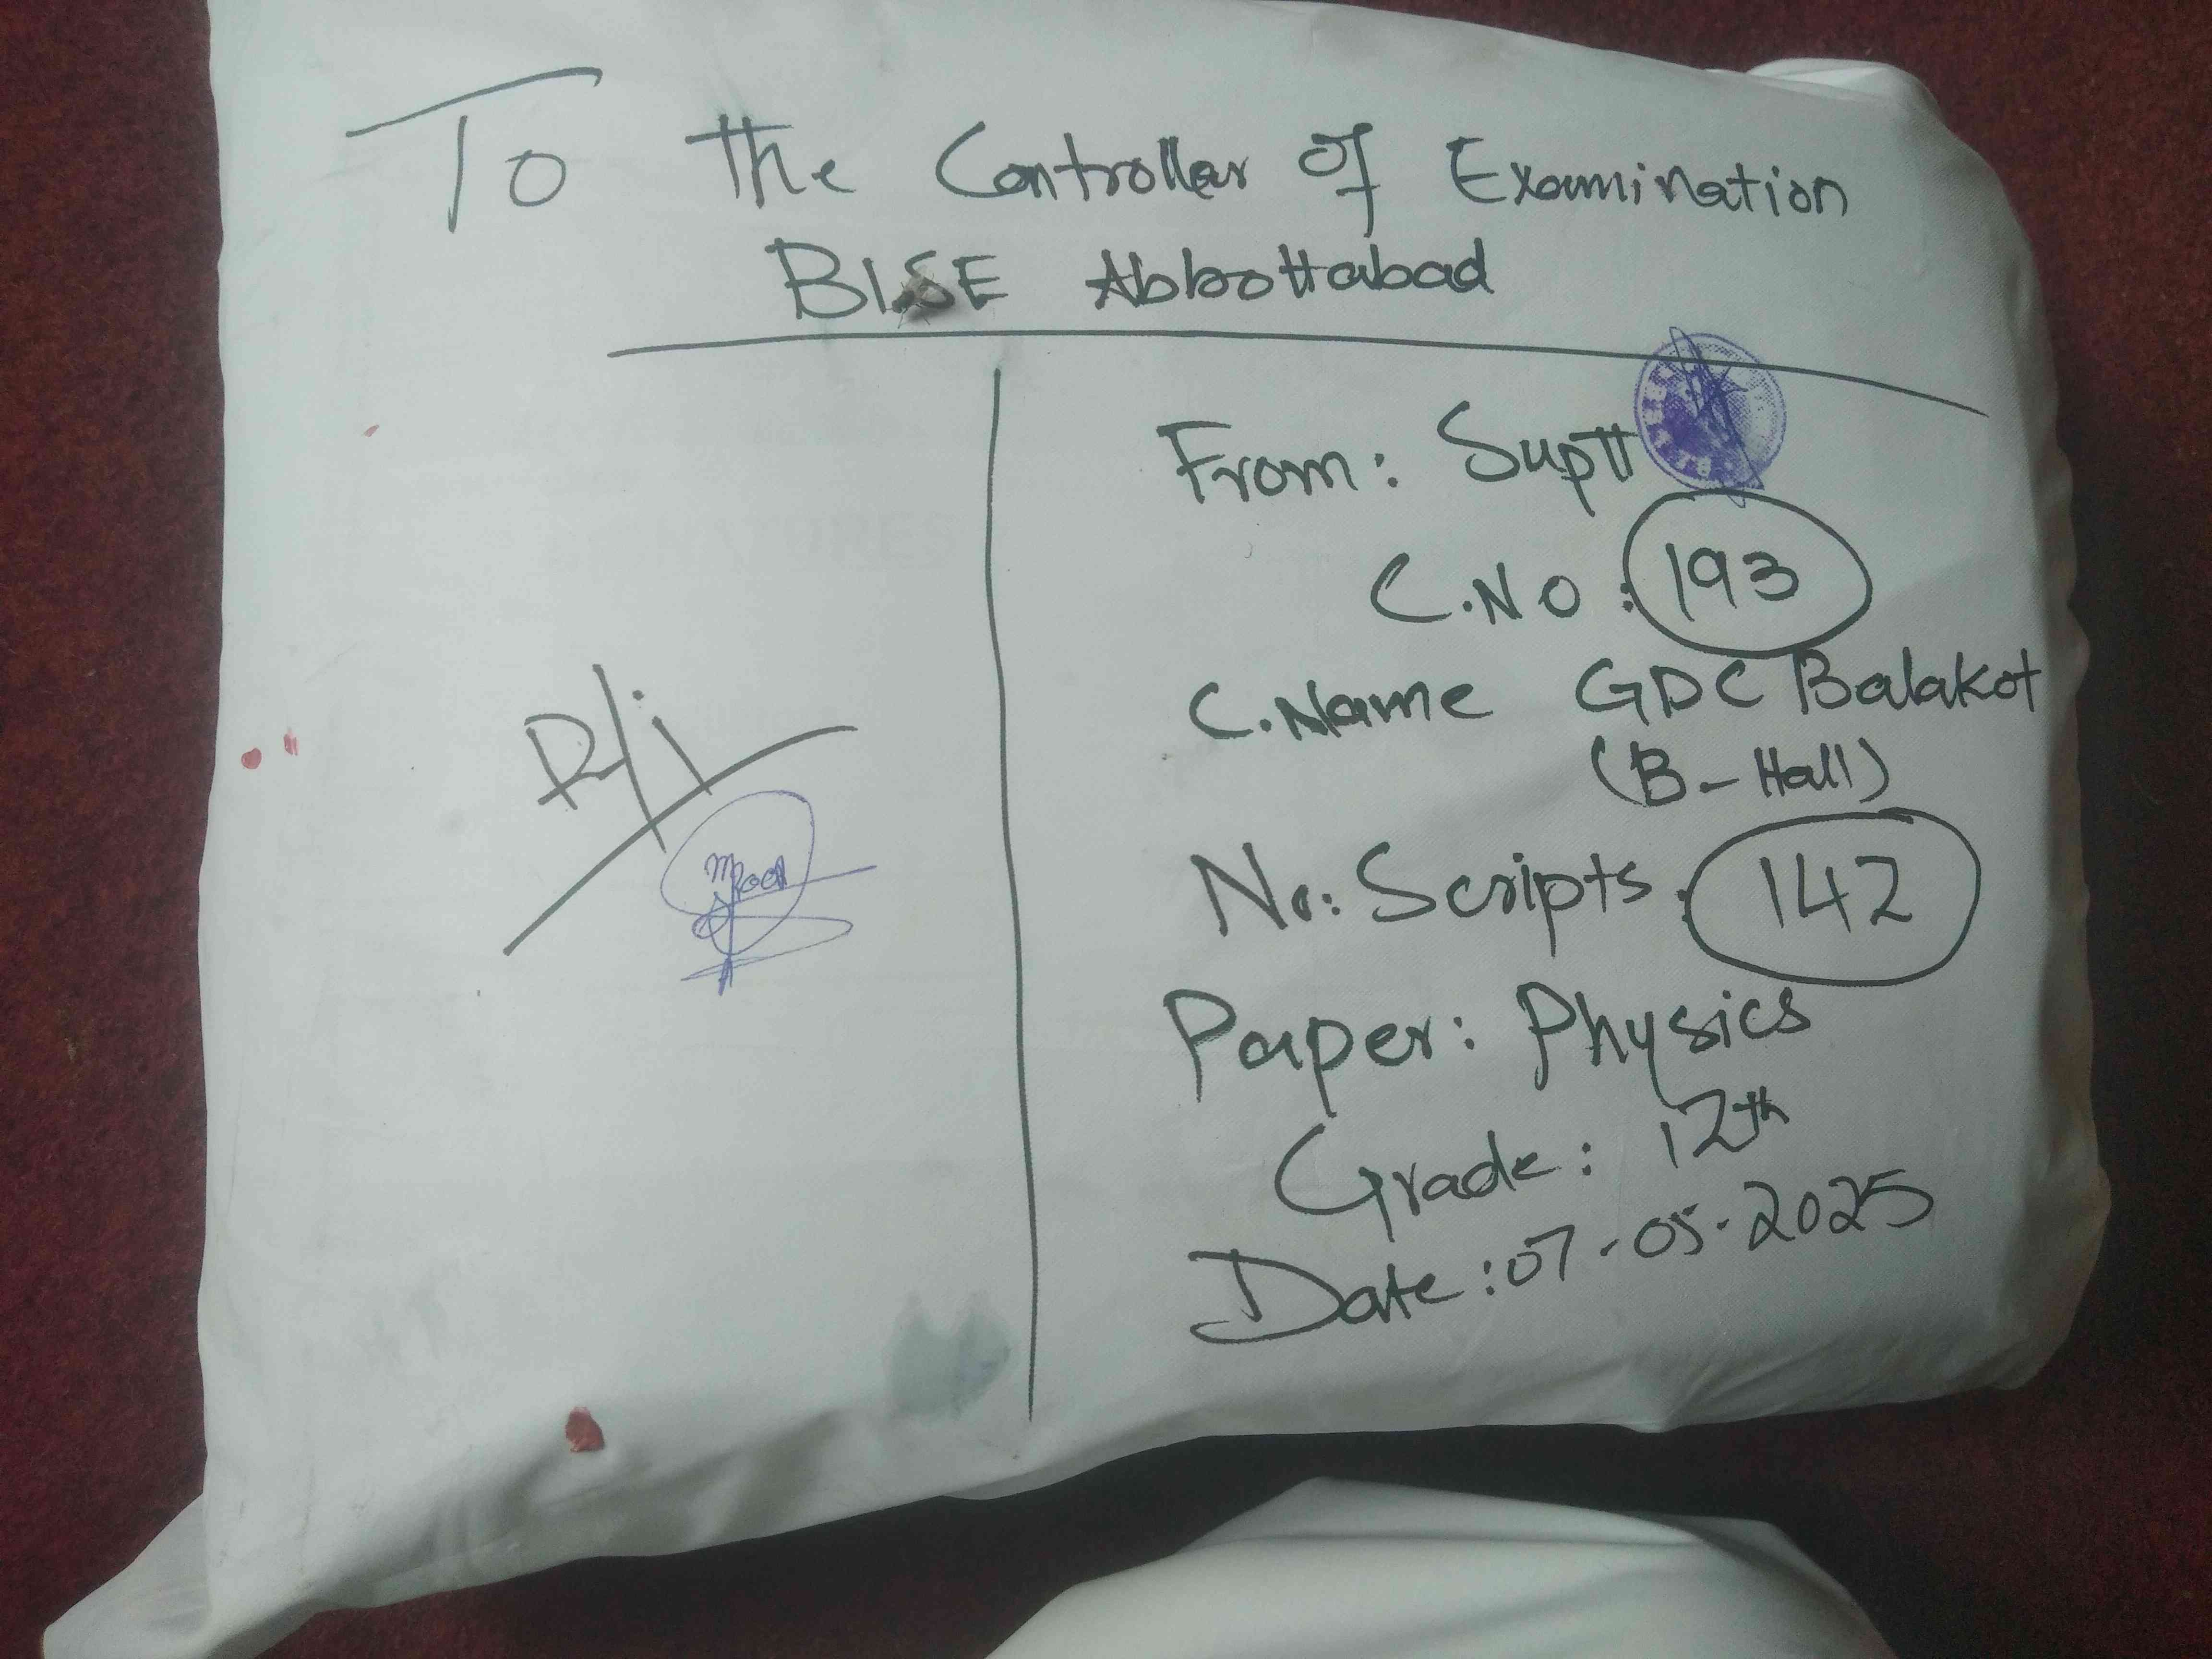 To The Controller Of Examination
BISE Abbottabad
From: Suptt
C.NO: 193
C.Name GDC Balakot
(B-Hall)
R/i
No: Scripts: 142
Paper: Physics
Grade: 12th
Date: 07-05-2025